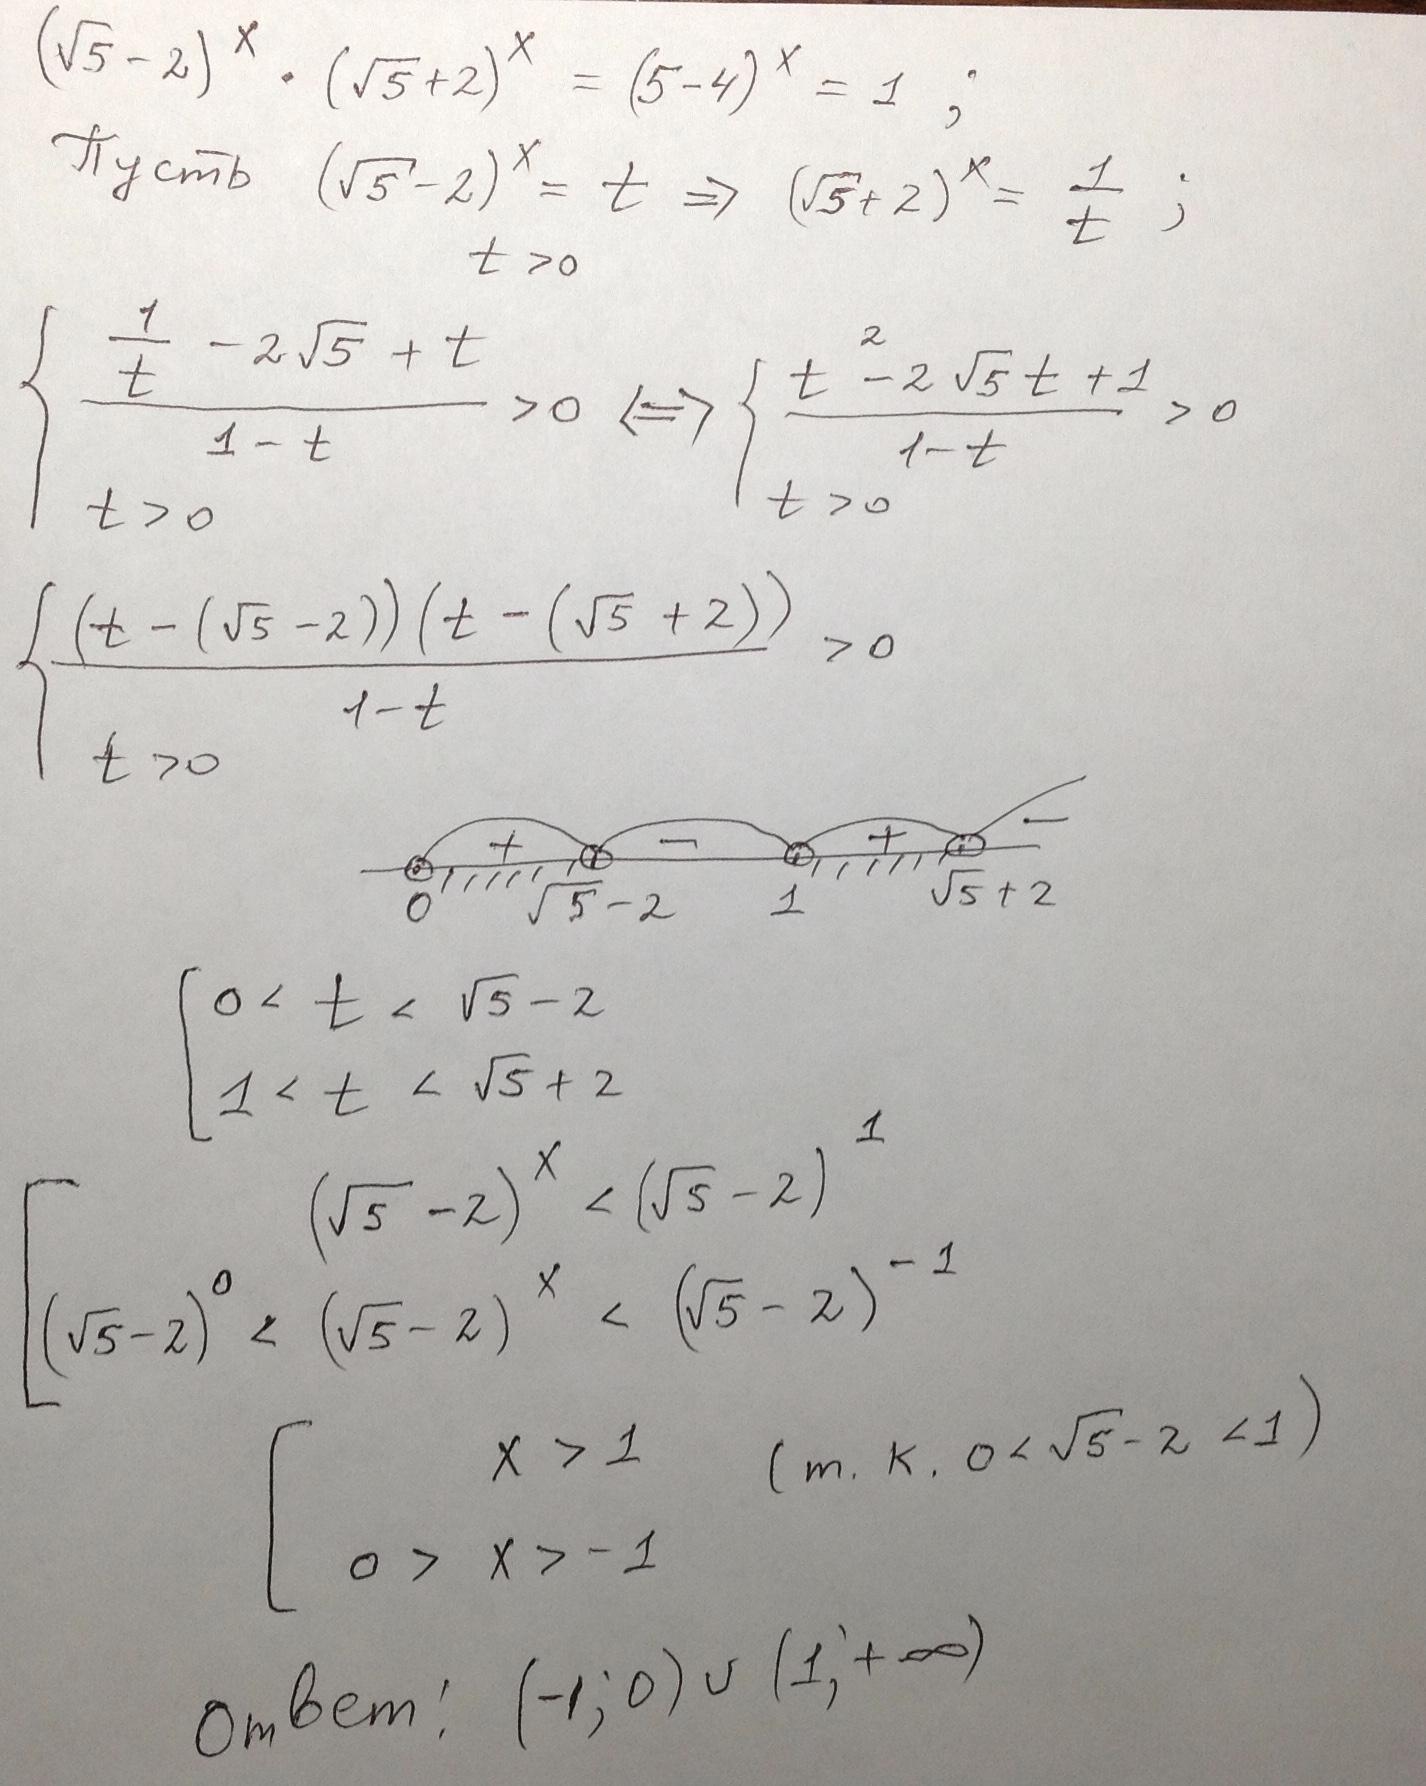 (√5-2)^x · (√5+2)^x = (5-4)^x = 1 ;
Пусть (√5-2)^x = t ⇒ (√5+2)^x = 1/t ;
t>0
{ (1/t - 2√5 + t)/(1-t) >0 ⟺ { (t^2 - 2√5 t + 1)/(1-t) >0
t>0 t>0
{ ((t-(√5-2))(t-(√5+2)))/(1-t) >0
t>0
+ - + -
0 √5-2 1 √5+2
[ 0 < t < √5-2
1 < t < √5+2
[ (√5-2)^x < (√5-2)^1
(√5-2)^0 < (√5-2)^x < (√5-2)^-1
[ x > 1 (т.к. 0<√5-2<1)
0 > x > -1
Ответ: (-1;0) ∪ (1;+∞)